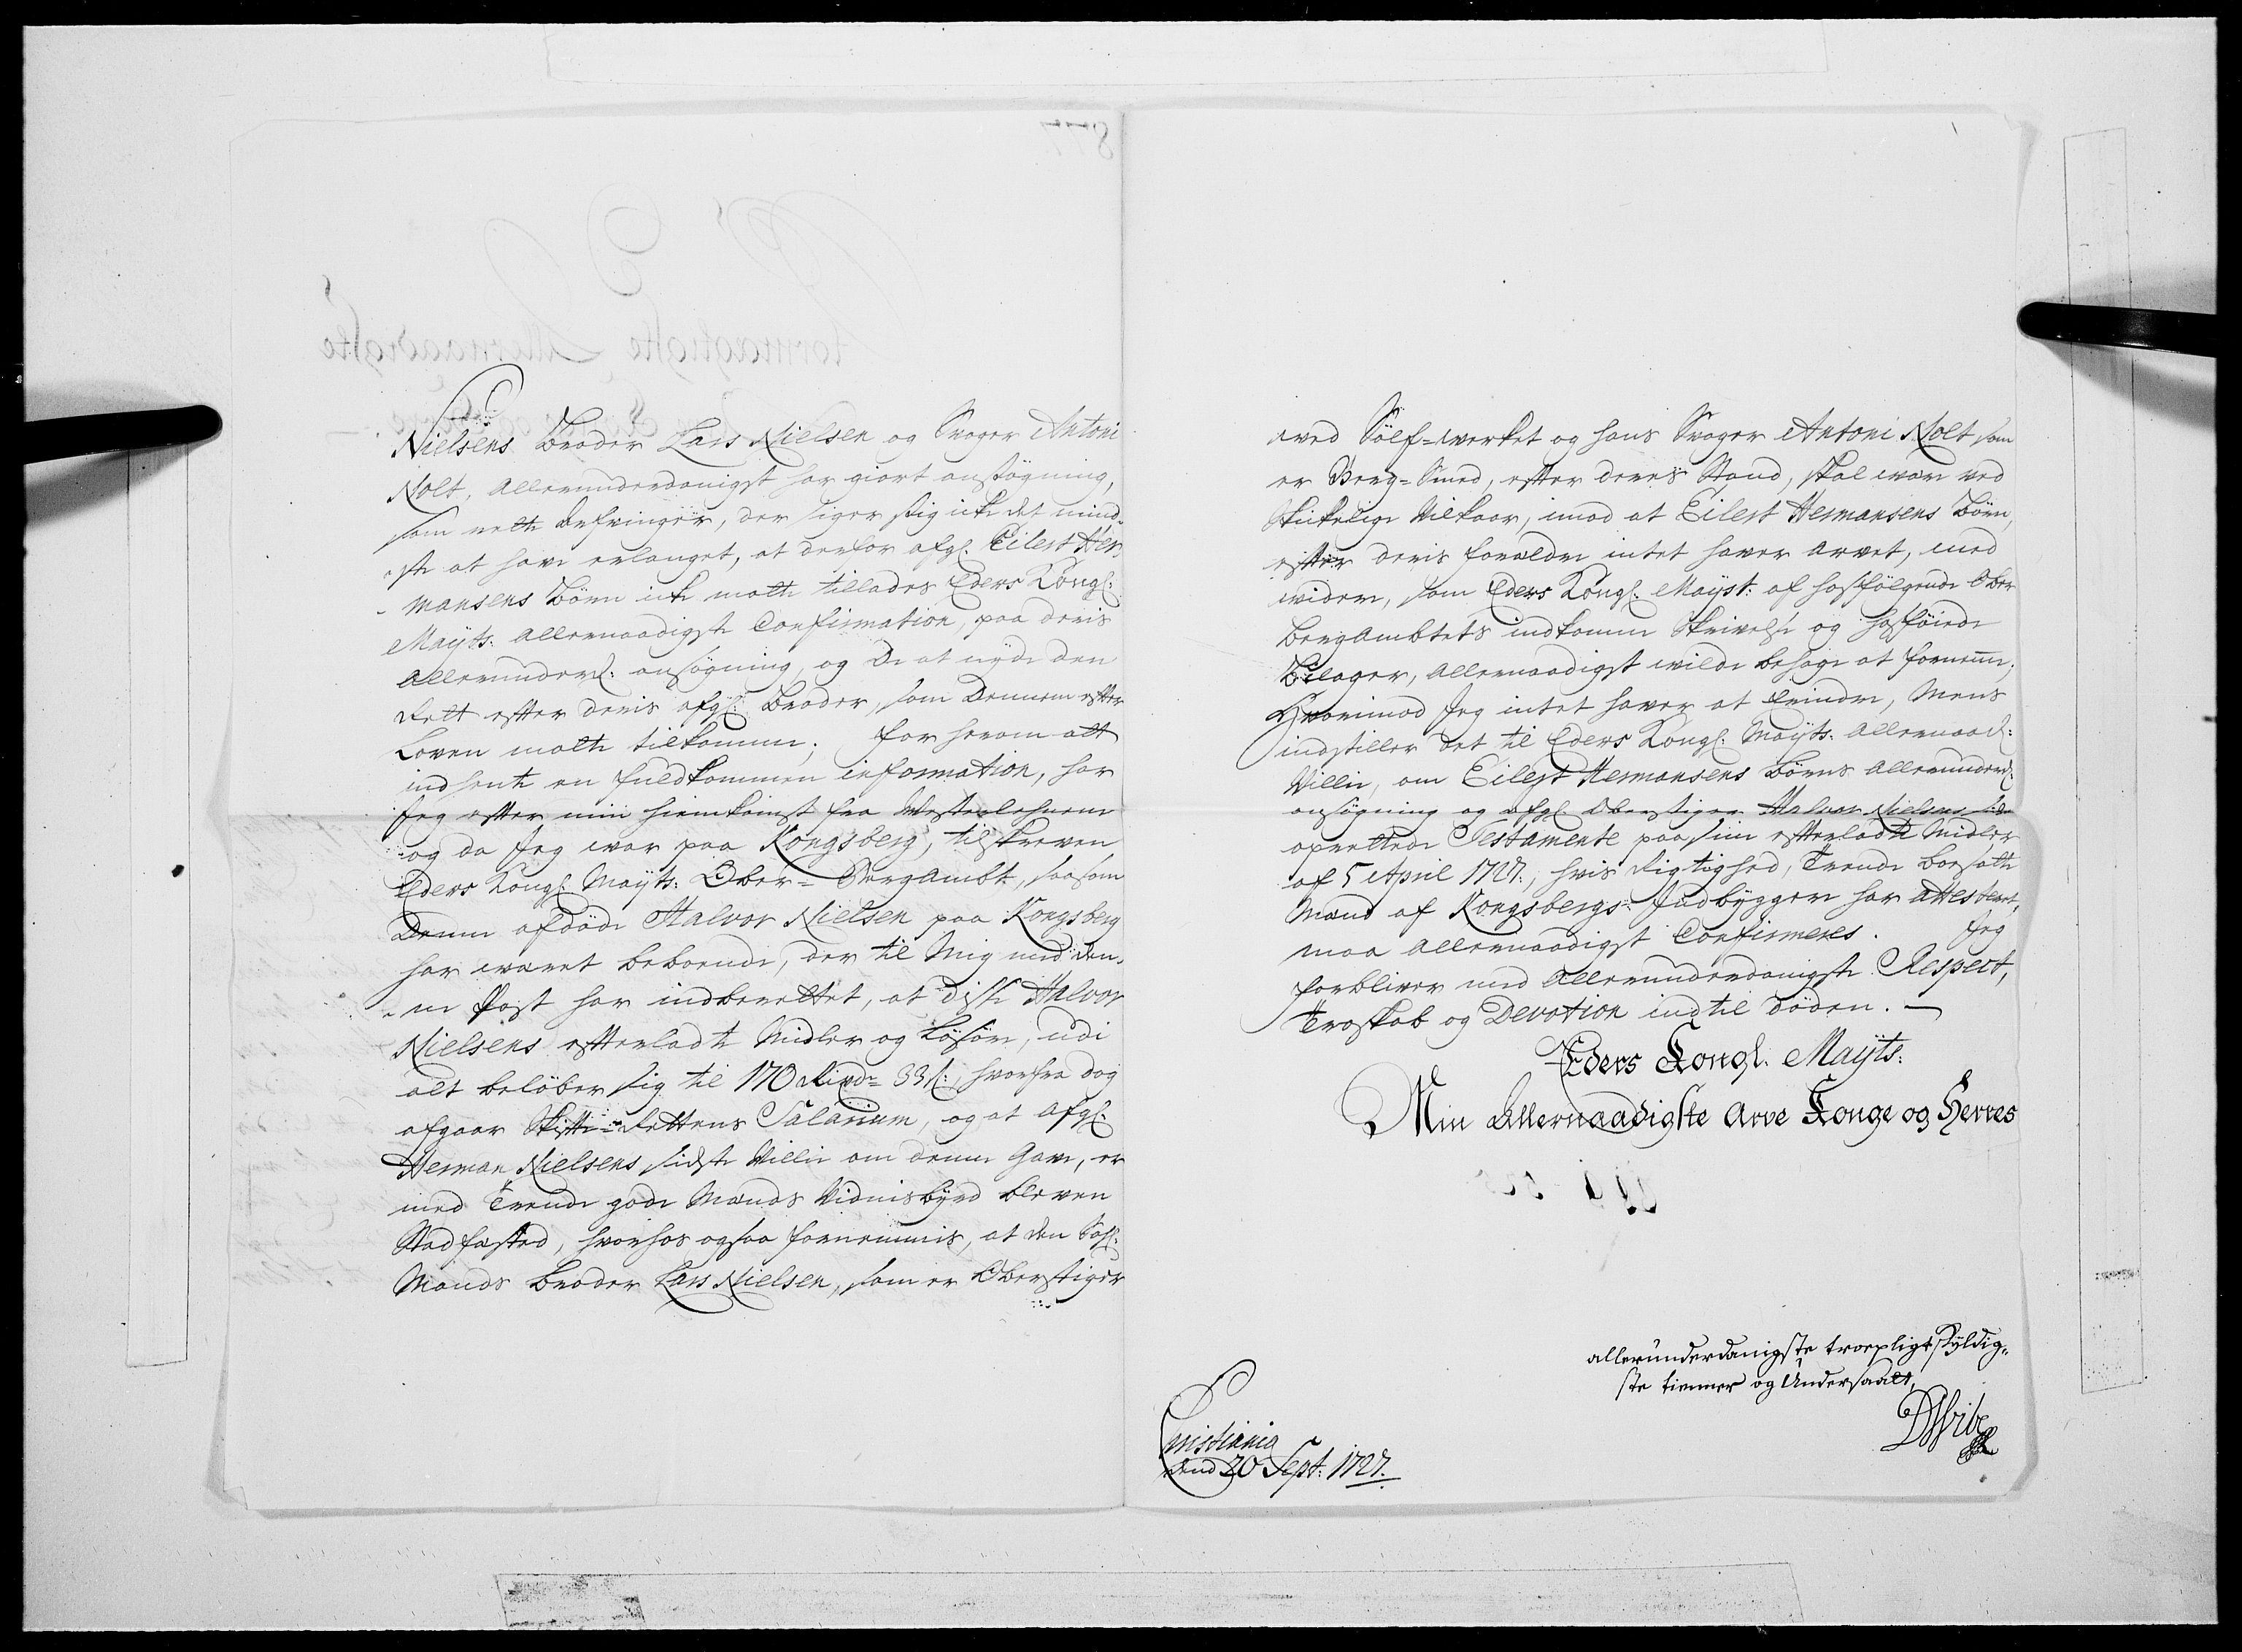 Nielsens Broder Lars Nielsen og Svoger Antoni
Nolt, Allerunderdanigst har giort ansøgning,
som rette Arfvinger, der siger sig icke det mind-
ste at have erlanget, at derfor afgl. Eilert Her-
mansens Børn icke motte tillades Eders Kongl:
Mayts: Allernaadigste Confirmation, paa deris
Allerunderd: ansøgning, og De at nyde den
Rett efter deris afgl: Broder, som Dennem efter
Loven motte tilkomme; for herom alt
indhente en fuldkommen information, har
Jeg efter min hiemkomst fra Westerlehnene
og da Jeg war paa Kongsberg, tilskreven
Eders Kongl. Mayts: Ober-Bergambt, saasom
Denne afdøde Halvor Nielsen paa Kongsberg
har waret beboende, der til Mig med den-
ne Post har indberettet, at disse Halvor
Nielsens efterladte Midler og Løsøre, udi
alt beløber sig til 170 Rixdr 33 s:, hvorfra dog
afgaar Skifte-Rettens Salarium, og at Afgl:
Herman Nielsens sidste Villie om denne Gave, er
med Trende gode Mænds Vidnisbyrd bleven
Stadfæsted, hvorhos ogsaa fornemmis, at den Sahl:
Mands Broder Lars Nielsen, som er Oberstiger
wed Sølf-werket og hans Svoger Antoni Nolt som
er Berg-Smed, efter deres Stand, skal være ved
Skickelige Vilkaar, imod at Eilert Hermansens Børn,
efter deris forældre intet haver arvet, med
videre, som Eders Kongl. Mayst: af hosfølgende Ober
Bergambtets indkomne Skrivelse og hosføiede
Bilager, allernaadigst wilde behage at fornemme;
Hvorimod Jeg intet haver at erindre, Mens
indstiller det til Eders Kongl: Mayts: Allernaad:
Villie, om Eilert Hermansens Børns Allerunderd:
ansøgning og afgl. Oberstiger Halvor Nielsens
oprettede Testamente paa sine efterladte Midler
af 5 April 1727:, hvis Rigtighed, Trende boesatte
Mænd af Kongsbergs Indbyggere har attesteret,
maa allernaadigst Confirmeres. Jeg
forbliver med allerunderdanigste Respect,
Troskab og Devotion indtil døden.
Eders Kongl. Mayts:
Min Allernaadigste Arve Konge og Herres
allerunderdanigste troepligtskyldig-
ste tienner og Undersaatt,
DWibe
Cristiania
dend 20 Sept: 1727.